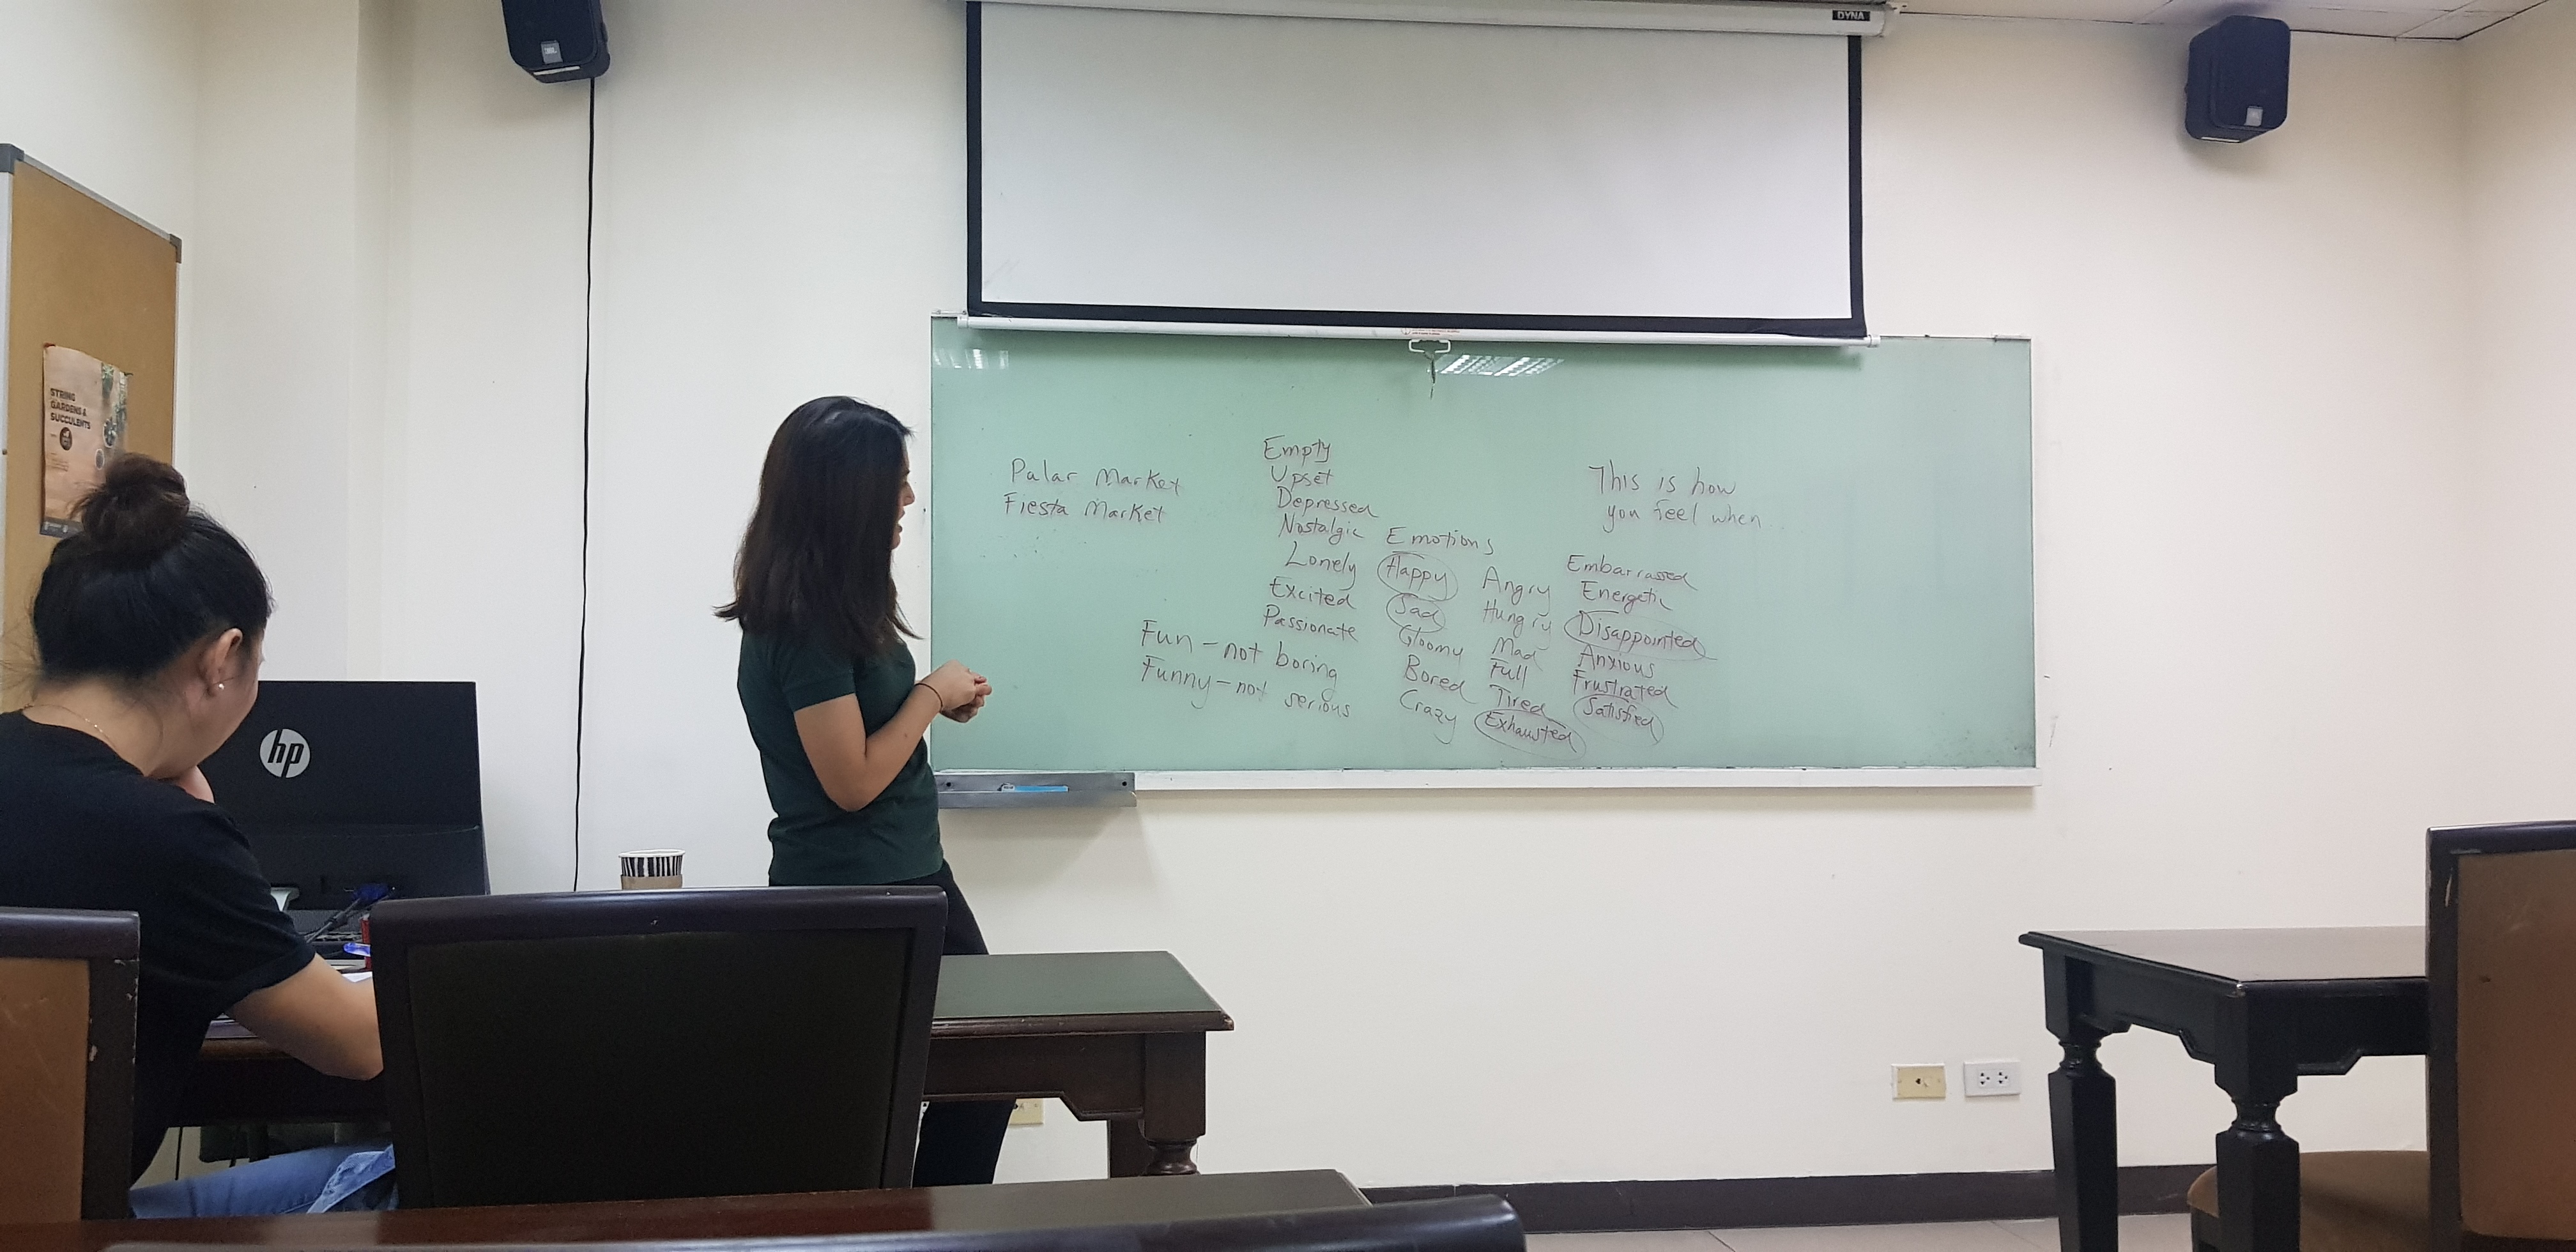 DYNA
JBL
STRING
GARDENS &
SUCCULENTS
hp
Palar Market
Fiesta Market
Empty
Upset
Depressed
Nostalgic
Lonely
Excited
Passionate
Fun - not boring
Funny - not serious
Emotions
Happy
Sad
Gloomy
Bored
Crazy
Angry
Hungry
Mad
Full
Tired
Exhausted
This is how
you feel when
Embarrassed
Energetic
Disappointed
Anxious
Frustrated
Satisfied